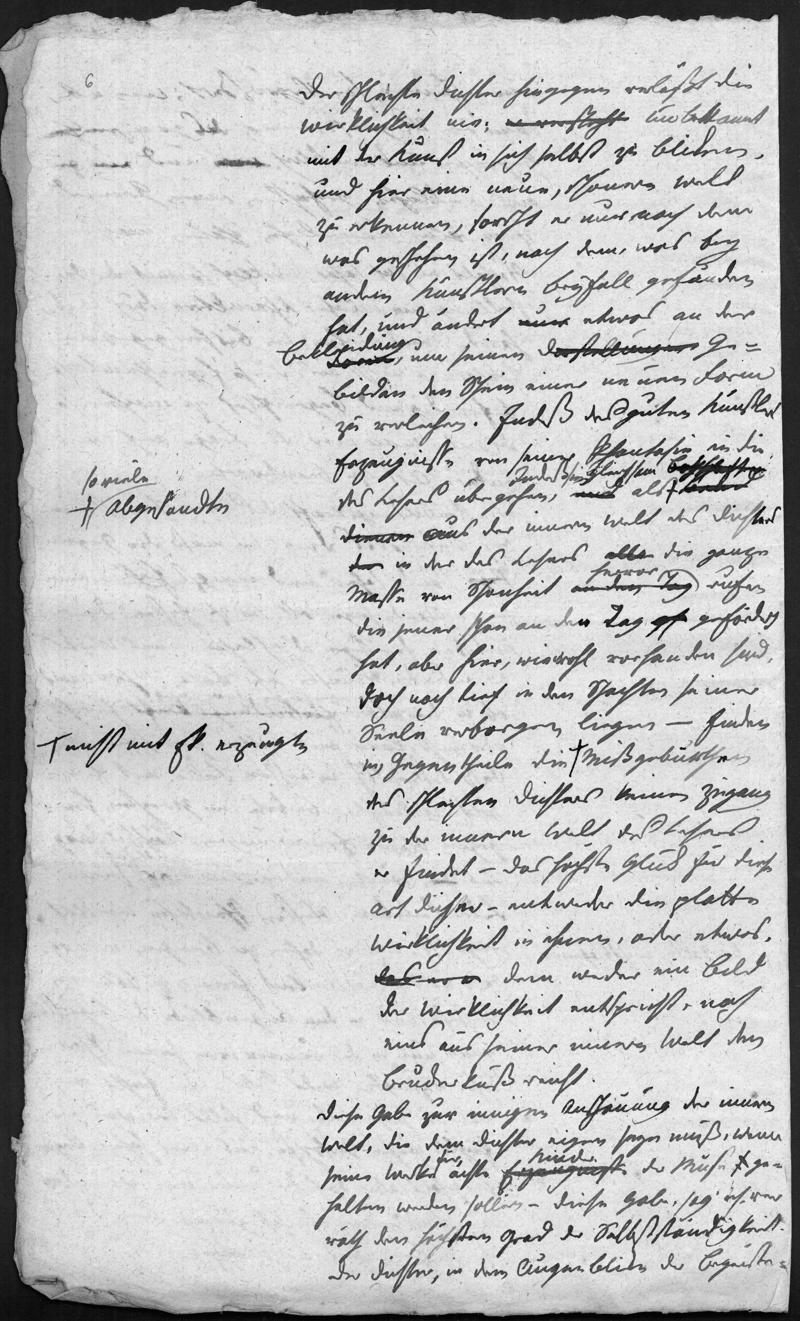 6
Der schlechte Dichter hingegen verläßt die
Wirklichkeit nie; er versteht unbekannt
mit der Kunst in sich selbst zu blicken,
und hier eine neue, schönere Welt
zu erkennen, forscht er nur nach dem
was geschehen ist, nach dem, was bey
andern Künstlern Beyfall gefunden
hat, und ändert nur etwas an der
Bekleidung
Form, um seinen Darstellungen Ge=
bilden den Schein einer neuen Form
zu verleihen. Indeß des guten Künstlers
Erzeugnisse von seiner Phantasie in die
des Lesers übergehen, und als
so viele
Abgesandte
aus der innern Welt des Dichters
in der des Lesers alle die ganze
Masse von Schönheit an den Tag hervor rufen
die jener schon an den Tag gefördert
hat, aber hier, wiewohl vorhanden sind,
doch noch tief in den Schachten seiner
Seele verborgen liegen – finden
nicht mit Ph. erzeugten
im Gegentheile die Mißgeburthen
des schlechten Dichters keinen Zugang
zu der innern Welt des Lesers
er findet – das höchste Glück für diese
Art Dichter – entweder die platte
Wirklichkeit in ihnen, oder etwas,
das dem weder ein Bild
der Wirklichkeit entspricht, noch
eins aus seiner innern Welt den
Bruderkuß reicht.
Diese Gabe zur innigen Anschauung der innern
Welt, die dem Dichter eigen seyn muß, wenn
seine Werke für ächte Erzeugnisse Kinder der Muse ge=
halten werden sollen – diese Gabe, sag' ich, ver
räth den höchsten Grad der Selbstständigkeit.
Der Dichter, in dem Augenblicke der Begeiste=